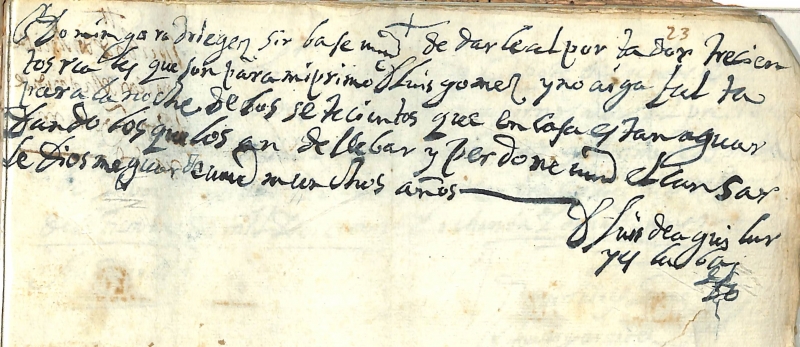 23
Domingo rodriegez sirbase vmd de darle al portador trecien
tos rs a les que son para mi primo D luis gomez y no aiga falta
para la noche de los setecientos que en casa estan aguar
dando los que los an de llebar y perdone vmd el cansar
le Dios me guarde a vmd munchos años
D luis de aguilar
y